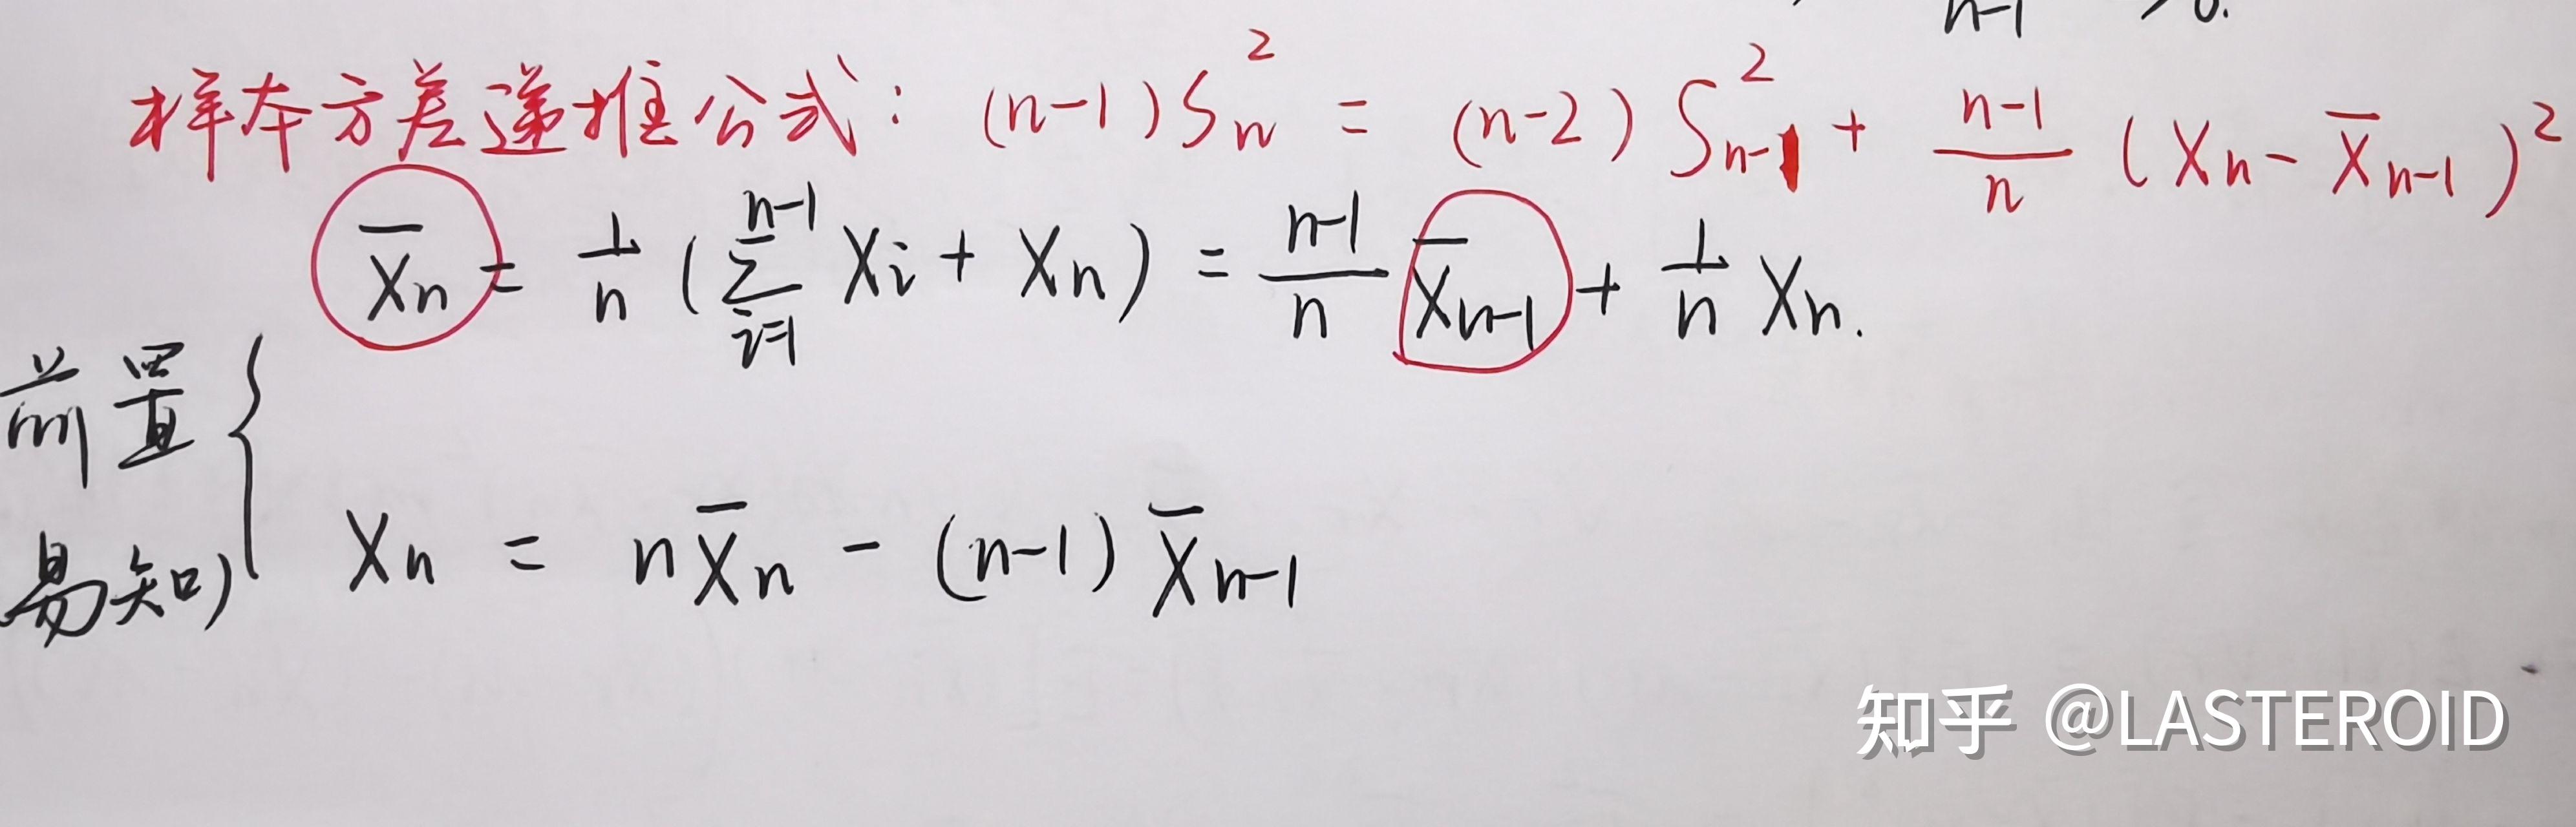 n-1 >0.
样本方差递推公式: (n-1)Sₙ² = (n-2)Sₙ₋₁² + \frac{n-1}{n} (Xₙ - X̄ₙ₋₁)²
X̄ₙ = \frac{1}{n} (∑_{i=1}^{n-1} Xᵢ + Xₙ) = \frac{n-1}{n} X̄ₙ₋₁ + \frac{1}{n} Xₙ.
前置
易知
Xₙ = nX̄ₙ - (n-1) X̄ₙ₋₁
知乎 @LASTEROID